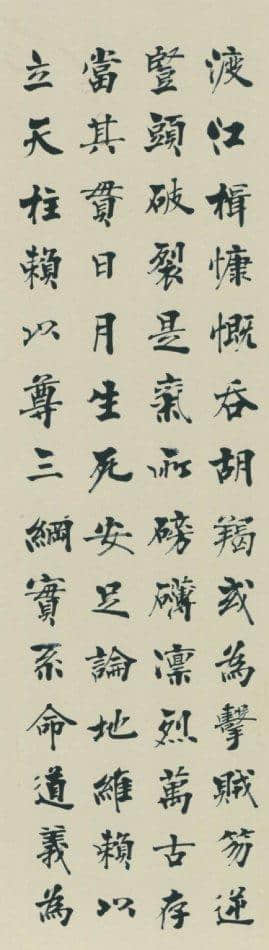 渡江楫慷慨吞胡羯或為擊賊笏逆
豎頭破裂是氣所磅礴凛烈萬古存
當其貫日月生死安足論地維賴以
立天柱賴以尊三綱實系命道義為